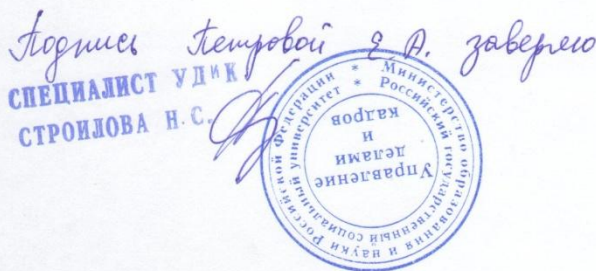 Подпись Петровой Е А. заверяю
СПЕЦИАЛИСТ УДиК
СТРОИЛОВА Н.С.
Министерство образования и науки Российской Федерации *
Российский государственный социальный университет *
Управление
делами
и
кадров